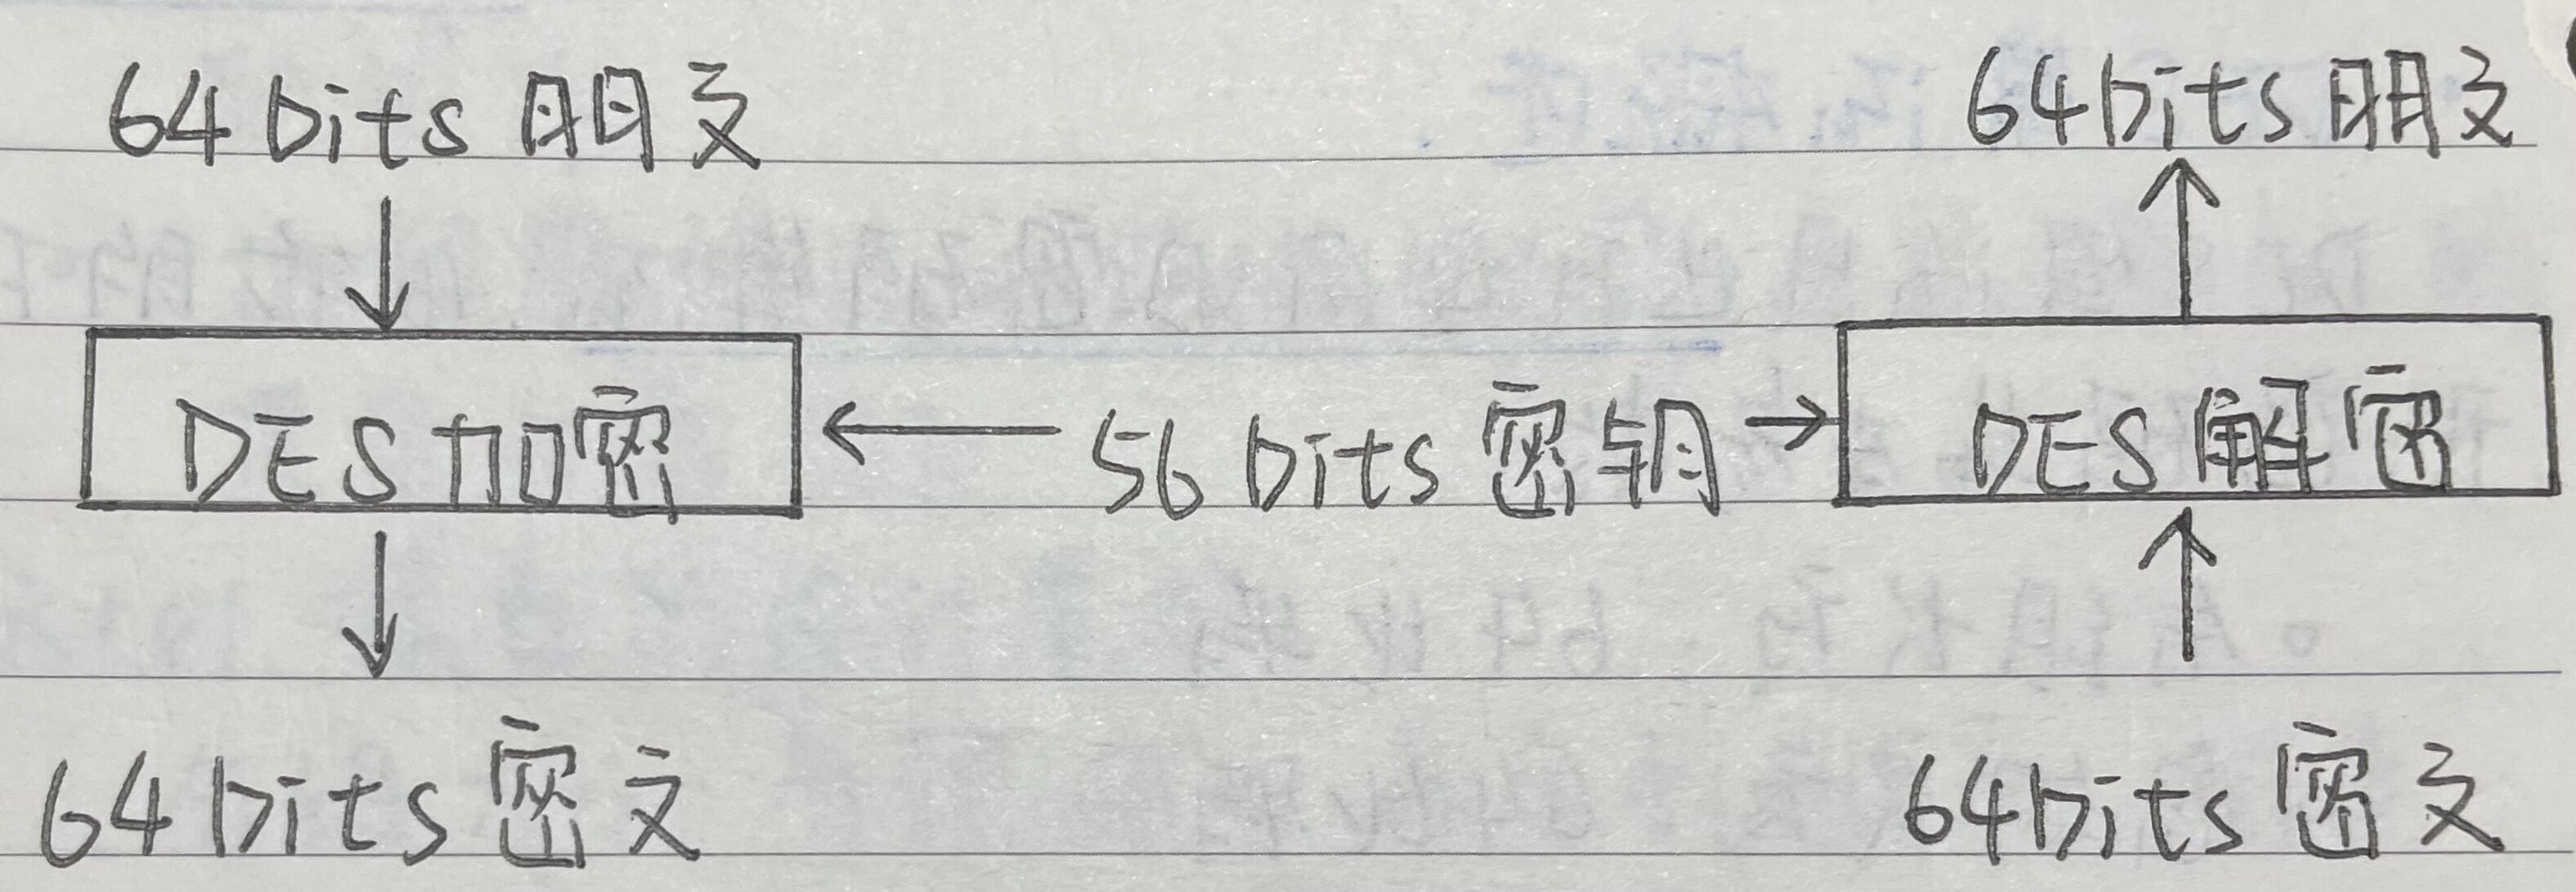 64 bits 明文 64 bits 明文
DES 加密 ← 56 bits 密钥 → DES 解密
64 bits 密文 64 bits 密文